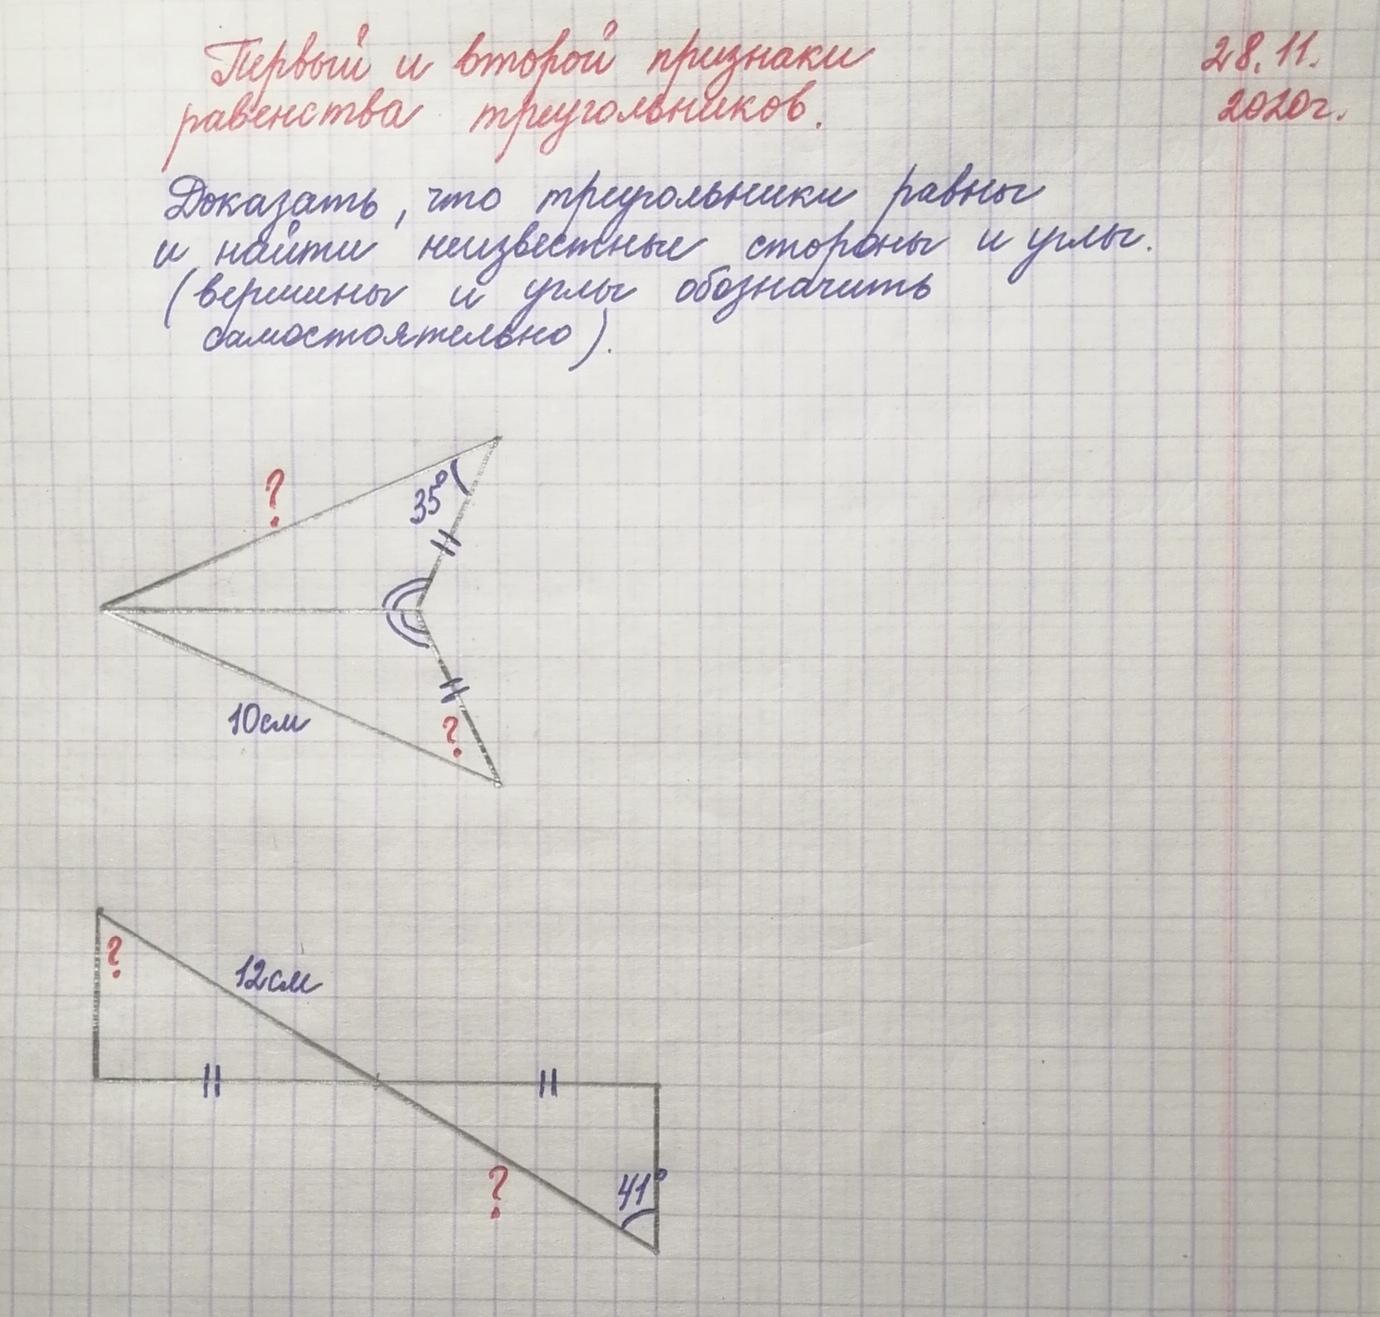 Первый и второй признаки
равенства треугольников.
28.11.
2020г.
Доказать, что треугольники равны
и найти неизвестные стороны и углы.
(вершины и углы обозначить
самостоятельно).
?
35°
10см
?
?
12см
?
41°